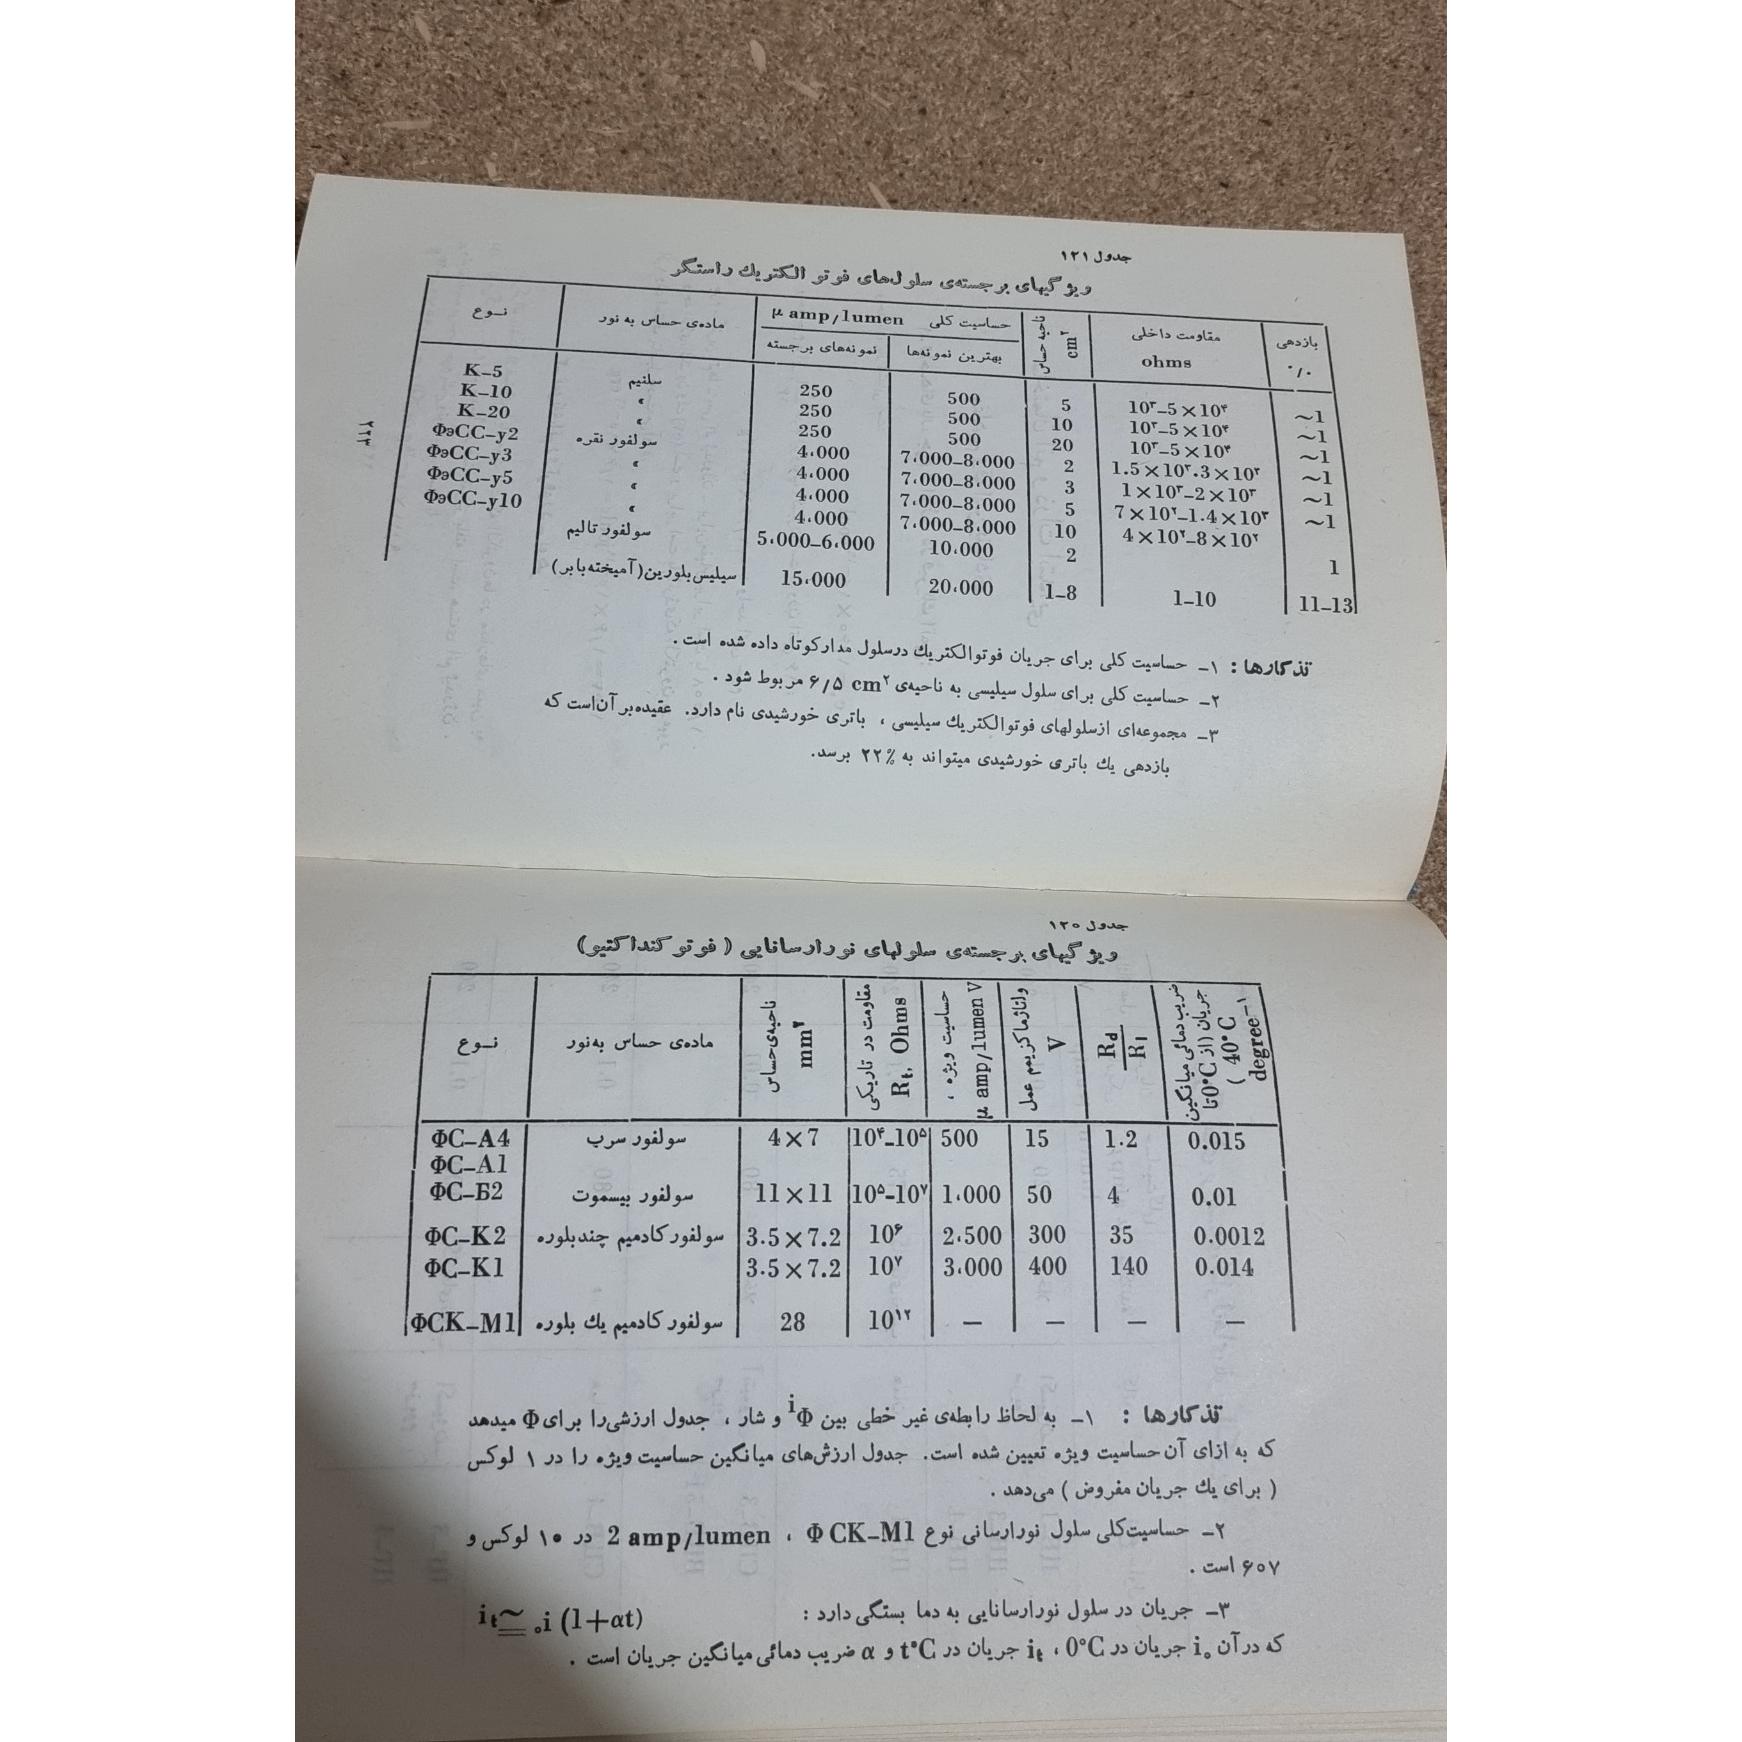 جدول ۱۲۱
ویژگیهای برجسته‌ی سلول‌های فوتو الکتریك راستگر
نـوع | ماده‌ی حساس به نور | حساسیت کلی μ amp/lumen | ناحیه حساس cm۲ | مقاومت داخلی ohms | بازدهی ۰/۰
نمونه‌های برجسته | بهترین نمونه‌ها
K–5 | سلنیم | 250 | 500 | 5 | 10۳–5×10۴ | ~1
K–10 | « | 250 | 500 | 10 | 10۳–5×10۴ | ~1
K–20 | « | 250 | 500 | 20 | 10۳–5×10۴ | ~1
ФэСС–y2 | سولفور نقره | 4،000 | 7،000–8،000 | 2 | 1.5×10۳.3×10۳ | ~1
ФэСС–y3 | « | 4،000 | 7،000–8،000 | 3 | 1×10۳–2×10۳ | ~1
ФэСС–y5 | « | 4،000 | 7،000–8،000 | 5 | 7×10۲–1.4×10۳ | ~1
ФэСС–y10 | « | 4،000 | 7،000–8،000 | 10 | 4×10۲–8×10۲
سولفور تالیم | 5،000–6،000 | 10،000 | 2 | 1
سیلیس بلورین (آمیخته با بر) | 15،000 | 20،000 | 1–8 | 1–10 | 11–13
تذکارها : ۱– حساسیت کلی برای جریان فوتوالکتریك درسلول مدارکوتاه داده شده است.
۲– حساسیت کلی برای سلول سیلیسی به ناحیه‌ی ۶/۵ cm۲ مربوط شود.
۳– مجموعه‌ای ازسلولهای فوتوالکتریك سیلیسی ، باتری خورشیدی نام دارد. عقیده‌بر آن‌است که
بازدهی یك باتری خورشیدی میتواند به ۲۲% برسد.
۲۲۳
جدول ۱۲۰
ویژگیهای برجسته‌ی سلولهای نورارسانایی (فوتوکنداکتیو)
نـوع | ماده‌ی حساس به‌نور | ناحیه‌ی حساس mm۲ | مقاومت در تاریکی Rt, Ohms | حساسیت ویژه ، μ amp/lumen V | ولتاژ ماکزیمم عمل V | Rd/Rl | ضریب دمائی میانگین جریان (از 0°C تا 40°C ) degree–۱
ФС–А4 | سولفور سرب | 4×7 | 10۴–10۵ | 500 | 15 | 1.2 | 0.015
ФС–А1
ФС–Б2 | سولفور بیسموت | 11×11 | 10۵–10۷ | 1،000 | 50 | 4 | 0.01
ФС–К2 | سولفور کادمیم چندبلوره | 3.5×7.2 | 10۶ | 2،500 | 300 | 35 | 0.0012
ФС–К1 | 3.5×7.2 | 10۷ | 3،000 | 400 | 140 | 0.014
ФСК–М1 | سولفور کادمیم یك بلوره | 28 | 10۱۲ | – | – | – | –
تذکارها : ۱– به لحاظ رابطه‌ی غیر خطی بین iΦ و شار ، جدول ارزشی‌را برای Φ میدهد
که به ازای آن حساسیت ویژه تعیین شده است. جدول ارزش‌های میانگین حساسیت ویژه را در ۱ لوکس
( برای یك جریان مفروض ) می‌دهد .
۲– حساسیت‌کلی سلول نورارسانی نوع ФСК–М1 ، 2 amp/lumen در ۱۰ لوکس و
۶۰۷ است .
۳– جریان در سلول نورارسانایی به دما بستگی دارد : it ≅ ₀i (1+αt)
که در آن i₀ جریان در 0°C ، it جریان در t°C و α ضریب دمائی میانگین جریان است .